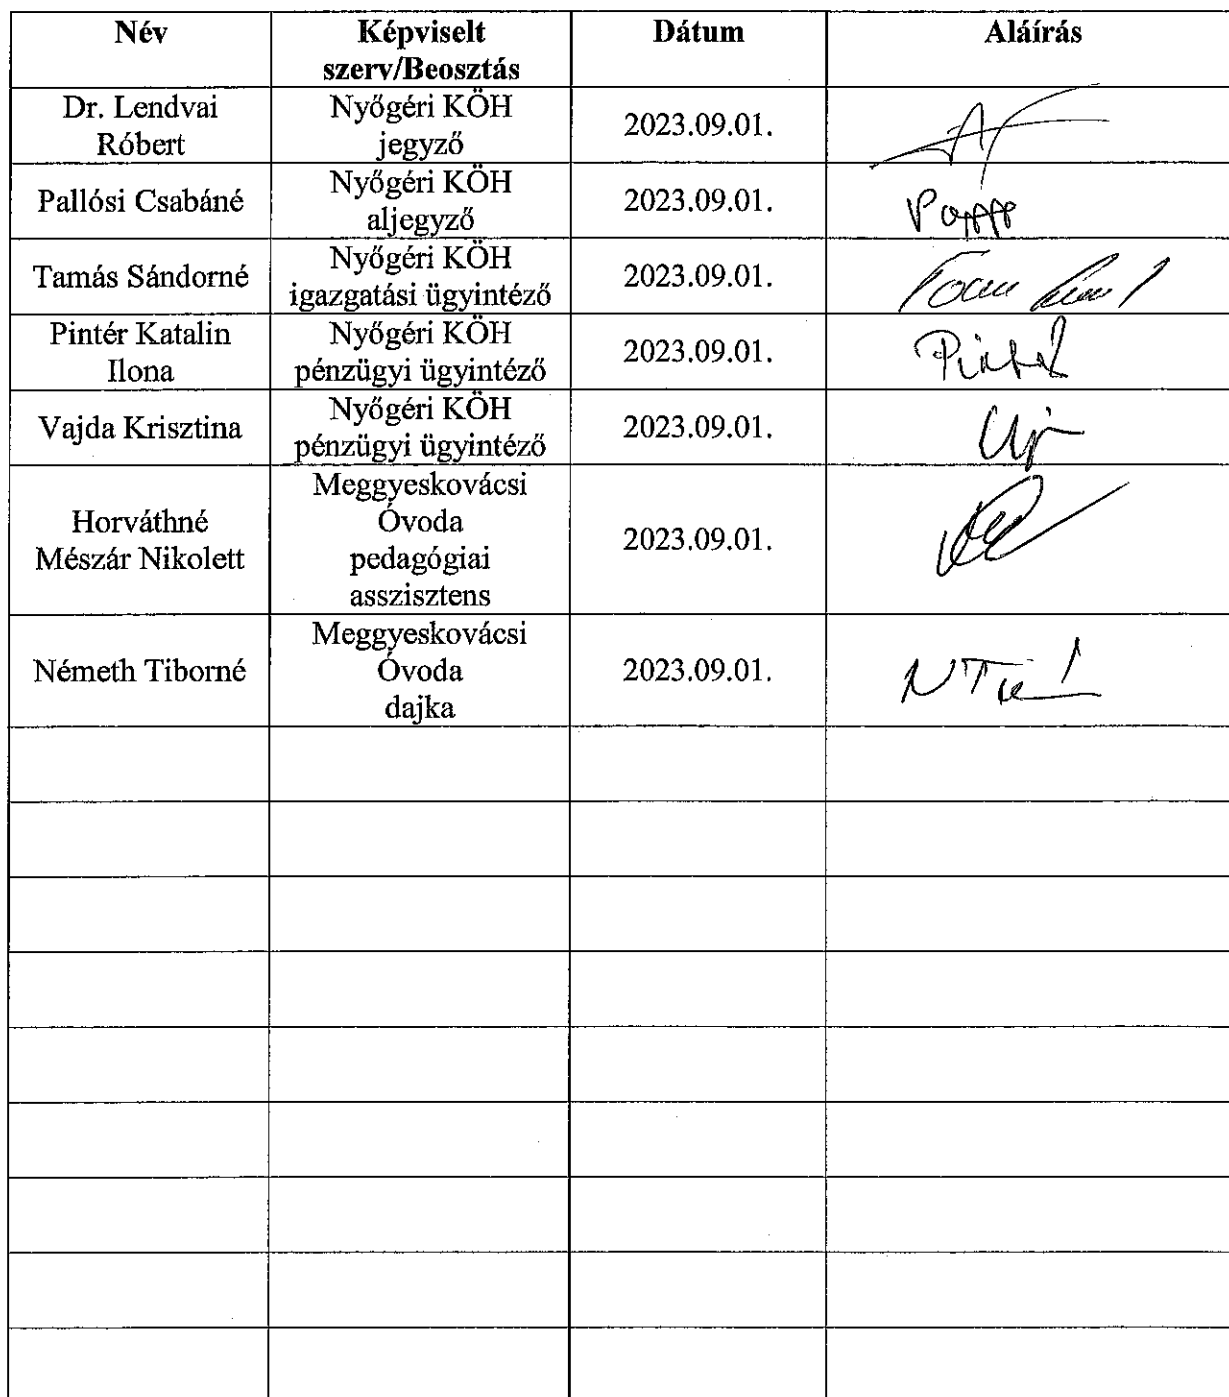 Név
Képviselt
szerv/Beosztás
Dátum
Aláírás
Dr. Lendvai
Róbert
Nyőgéri KÖH
jegyző
2023.09.01.
Pallósi Csabáné
Nyőgéri KÖH
aljegyző
2023.09.01.
Tamás Sándorné
Nyőgéri KÖH
igazgatási ügyintéző
2023.09.01.
Pintér Katalin
Ilona
Nyőgéri KÖH
pénzügyi ügyintéző
2023.09.01.
Vajda Krisztina
Nyőgéri KÖH
pénzügyi ügyintéző
2023.09.01.
Horváthné
Mészár Nikolett
Meggyeskovácsi
Óvoda
pedagógiai
asszisztens
2023.09.01.
Németh Tiborné
Meggyeskovácsi
Óvoda
dajka
2023.09.01.